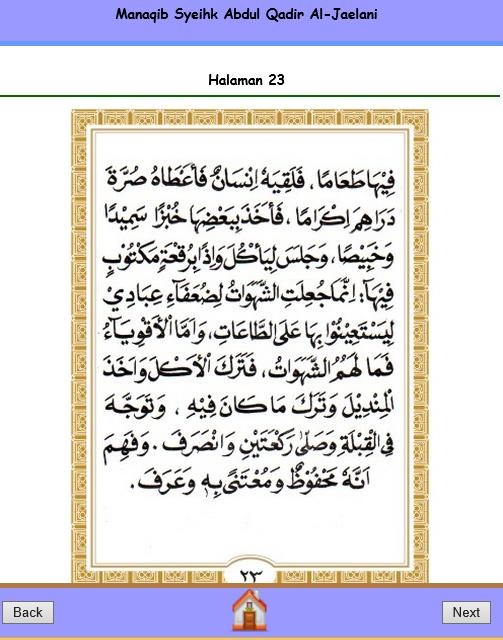 Manaqib Syeihk Abdul Qadir Al-Jaelani
Halaman 23
فِيْهَا طَعَامًا، فَلَقِيَهُ اِنْسَانٌ فَأَعْطَاهُ صُرَّةَ
دَرَاهِمَ اِكْرَامًا، فَأَخَذَ بِبَعْضِهَا خُبْزًا سَمِيْدًا
وَخَبِيْصًا، وَجَلَسَ لِيَأْكُلَ وَاِذًا بِرُقْعَةٍ مَكْتُوْبٍ
فِيْهَا: اِنَّمَا جُعِلَتِ الشَّهَوَاتُ لِضُعَفَاءِ عِبَادِيْ
لِيَسْتَعِيْنُوْا بِهَا عَلَى الطَّاعَاتِ، وَاَمَّا الْأَقْوِيَاءُ
فَمَا لَهُمُ الشَّهَوَاتُ، فَتَرَكَ الْأَكْلَ وَاَخَذَ
الْمِنْدِيْلَ وَتَرَكَ مَا كَانَ فِيْهِ، وَتَوَجَّهَ
فِى الْقِبْلَةِ وَصَلَّى رَكْعَتَيْنِ وَانْصَرَفَ. وَفَهِمَ
اَنَّهُ مَحْفُوْظٌ وَمُعْتَنًى بِهِ وَعَرَفَ.
٢٣
Back
Next